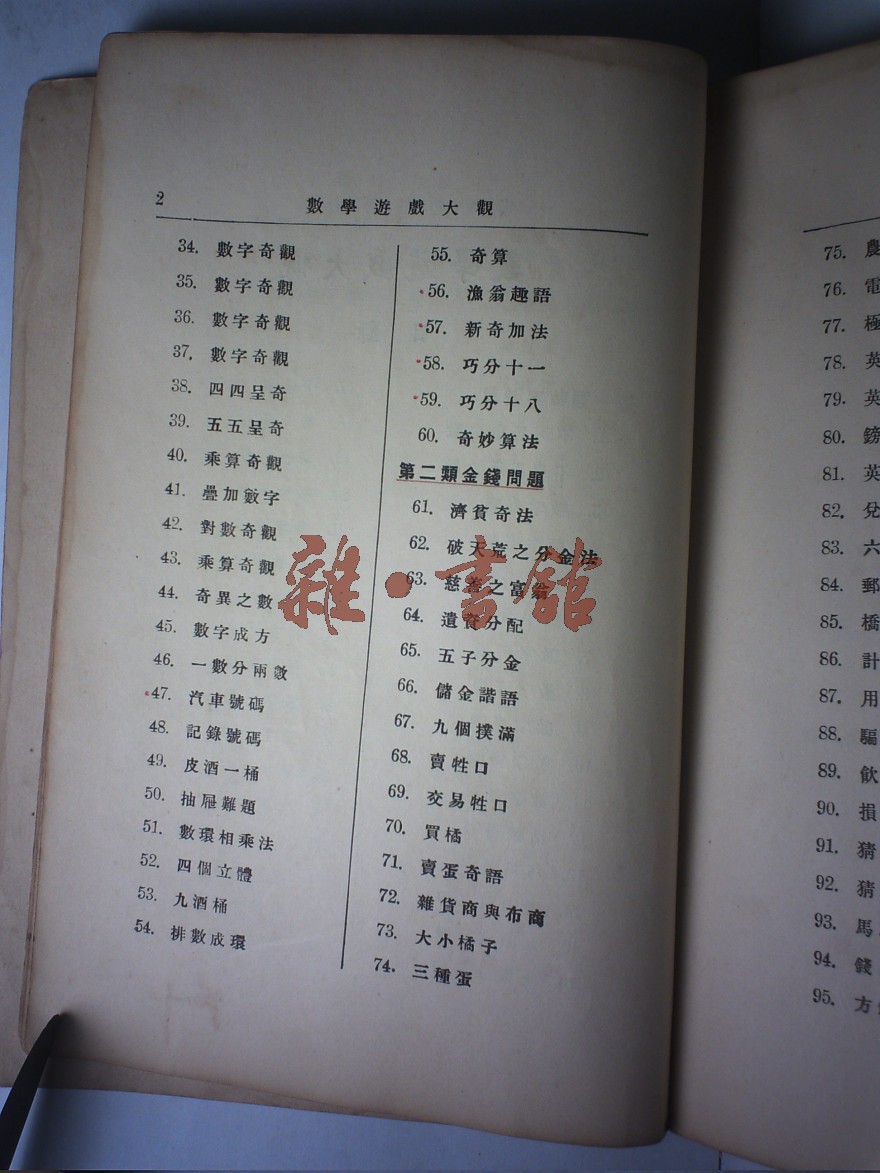 2
數學遊戲大觀
34. 數字奇觀
35. 數字奇觀
36. 數字奇觀
37. 數字奇觀
38. 四四呈奇
39. 五五呈奇
40. 乘算奇觀
41. 疊加數字
42. 對數奇觀
43. 乘算奇觀
44. 奇異之數
45. 數字成方
46. 一數分兩數
47. 汽車號碼
48. 記錄號碼
49. 皮酒一桶
50. 抽屜難題
51. 數環相乘法
52. 四個立體
53. 九酒桶
54. 排數成環
55. 奇算
56. 漁翁趣語
57. 新奇加法
58. 巧分十一
59. 巧分十八
60. 奇妙算法
第二類金錢問題
61. 濟貧奇法
62. 破天荒之分金法
63. 慈善之富翁
64. 遺資分配
65. 五子分金
66. 儲金諧語
67. 九個撲滿
68. 賣牲口
69. 交易牲口
70. 買橘
71. 賣蛋奇語
72. 雜貨商與布商
73. 大小橘子
74. 三種蛋
雜·書館
75. 農
76. 電
77. 極
78. 英
79. 英
80. 鎊
81. 英
82. 兌
83. 六
84. 郵
85. 橋
86. 計
87. 用
88. 騙
89. 飲
90. 損
91. 猜
92. 猜
93. 馬
94. 錢
95. 方